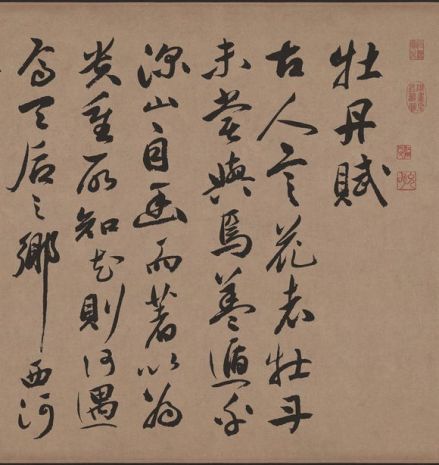 牡丹賦
古人言花者牡丹
未嘗與焉蓋遁乎
深山自幽而著以為
貴重所知花則何遇
焉天后之鄉西河